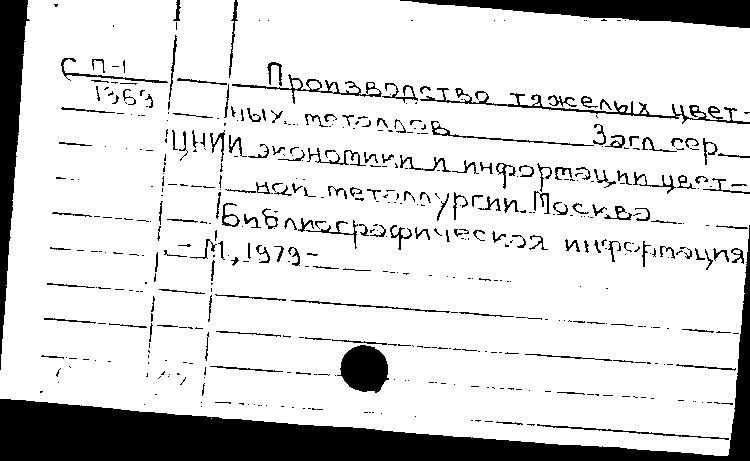 С П-1
1369
Производство тяжелых цвет-
ных металлов Загл. сер.
ЦНИИ экономики и информации цвет-
ной металлургии. Москва
Библиографическая информация
- М., 1979-